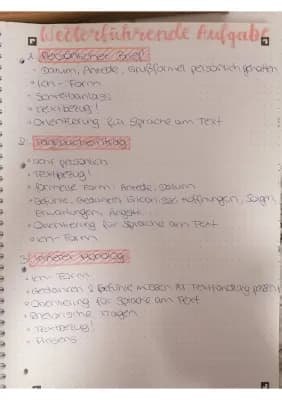 Weiterführende Aufgabe
1. Persönlicher Brief
- Datum, Anrede, Grußformel persönlich gehalten
• Ich-Form
• Schreibanlass
• Textbezug!
• Orientierung für Sprache am Text
2. Tagebucheintrag
• sehr persönlich
• Textbezug!
• formelle Form: Anrede, Datum
• Gefühle, Gedanken, Hoffnungen, Sorgen,
Erwartungen, Ängste
• Orientierung für Sprache am Text
• Ich-Form
3. Innerer Monolog
• Ich-Form
• Gedanken & Gefühle müssen zu Texthandlung passen
• Orientierung für Sprache am Text
• Rhetorische Fragen
• Textbezug!
• Präsens